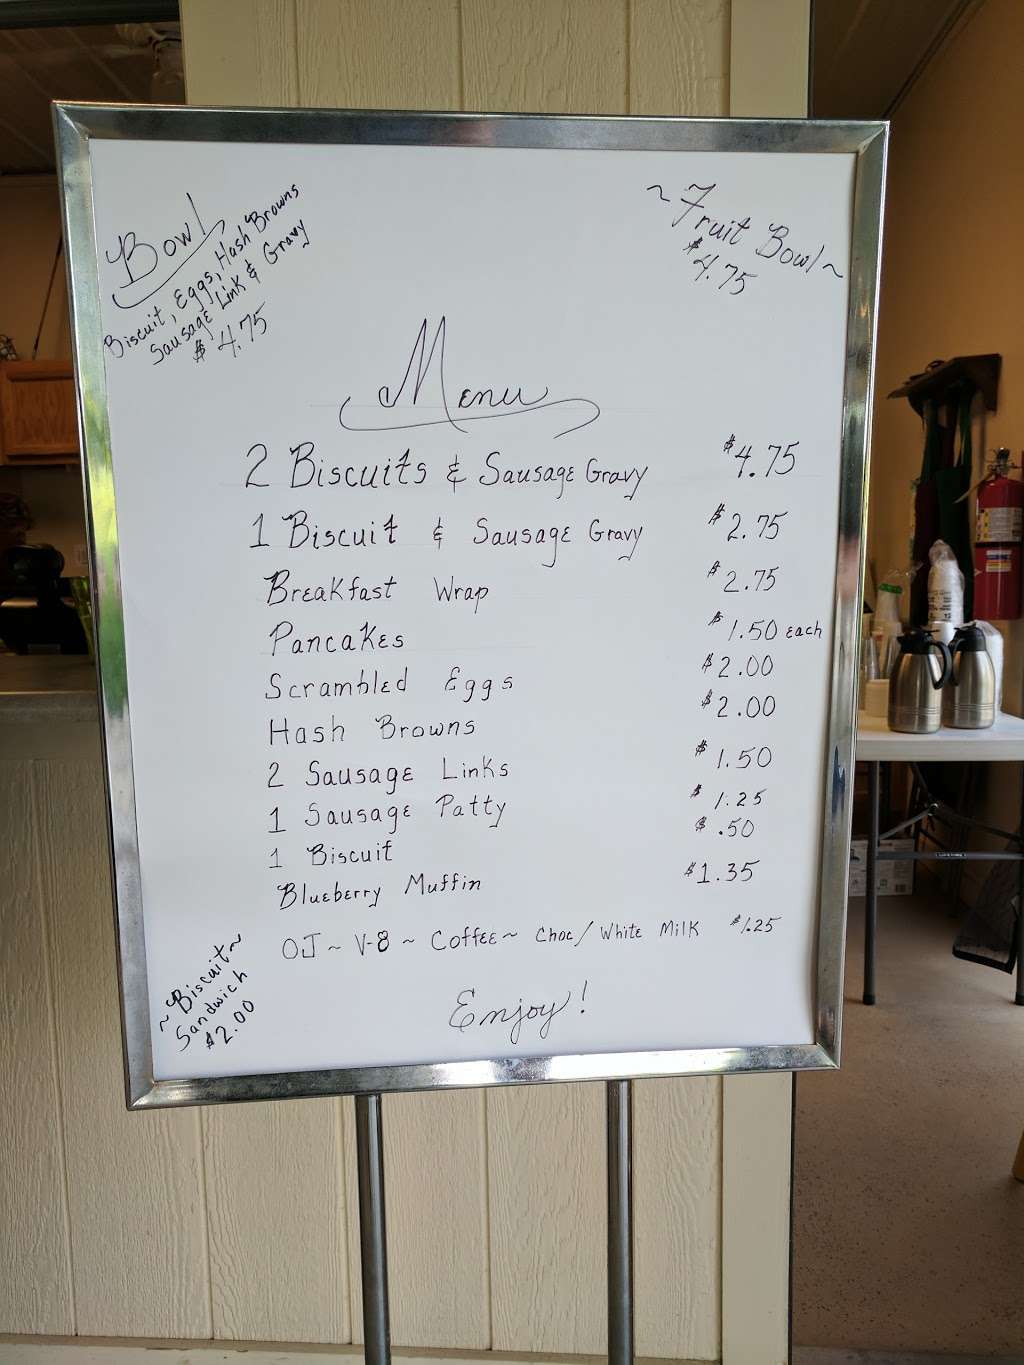 Bowl
Biscuit, Eggs, Hash Browns
Sausage Link & Gravy
$4.75
~Fruit Bowl~
$4.75
Menu
2 Biscuits & Sausage Gravy $4.75
1 Biscuit & Sausage Gravy $2.75
Breakfast Wrap $2.75
Pancakes $1.50 each
Scrambled Eggs $2.00
Hash Browns $2.00
2 Sausage Links $1.50
1 Sausage Patty $1.25
1 Biscuit $.50
Blueberry Muffin $1.35
OJ ~ V-8 ~ Coffee ~ Choc/White Milk $1.25
~Biscuit~
Sandwich
$2.00
Enjoy!